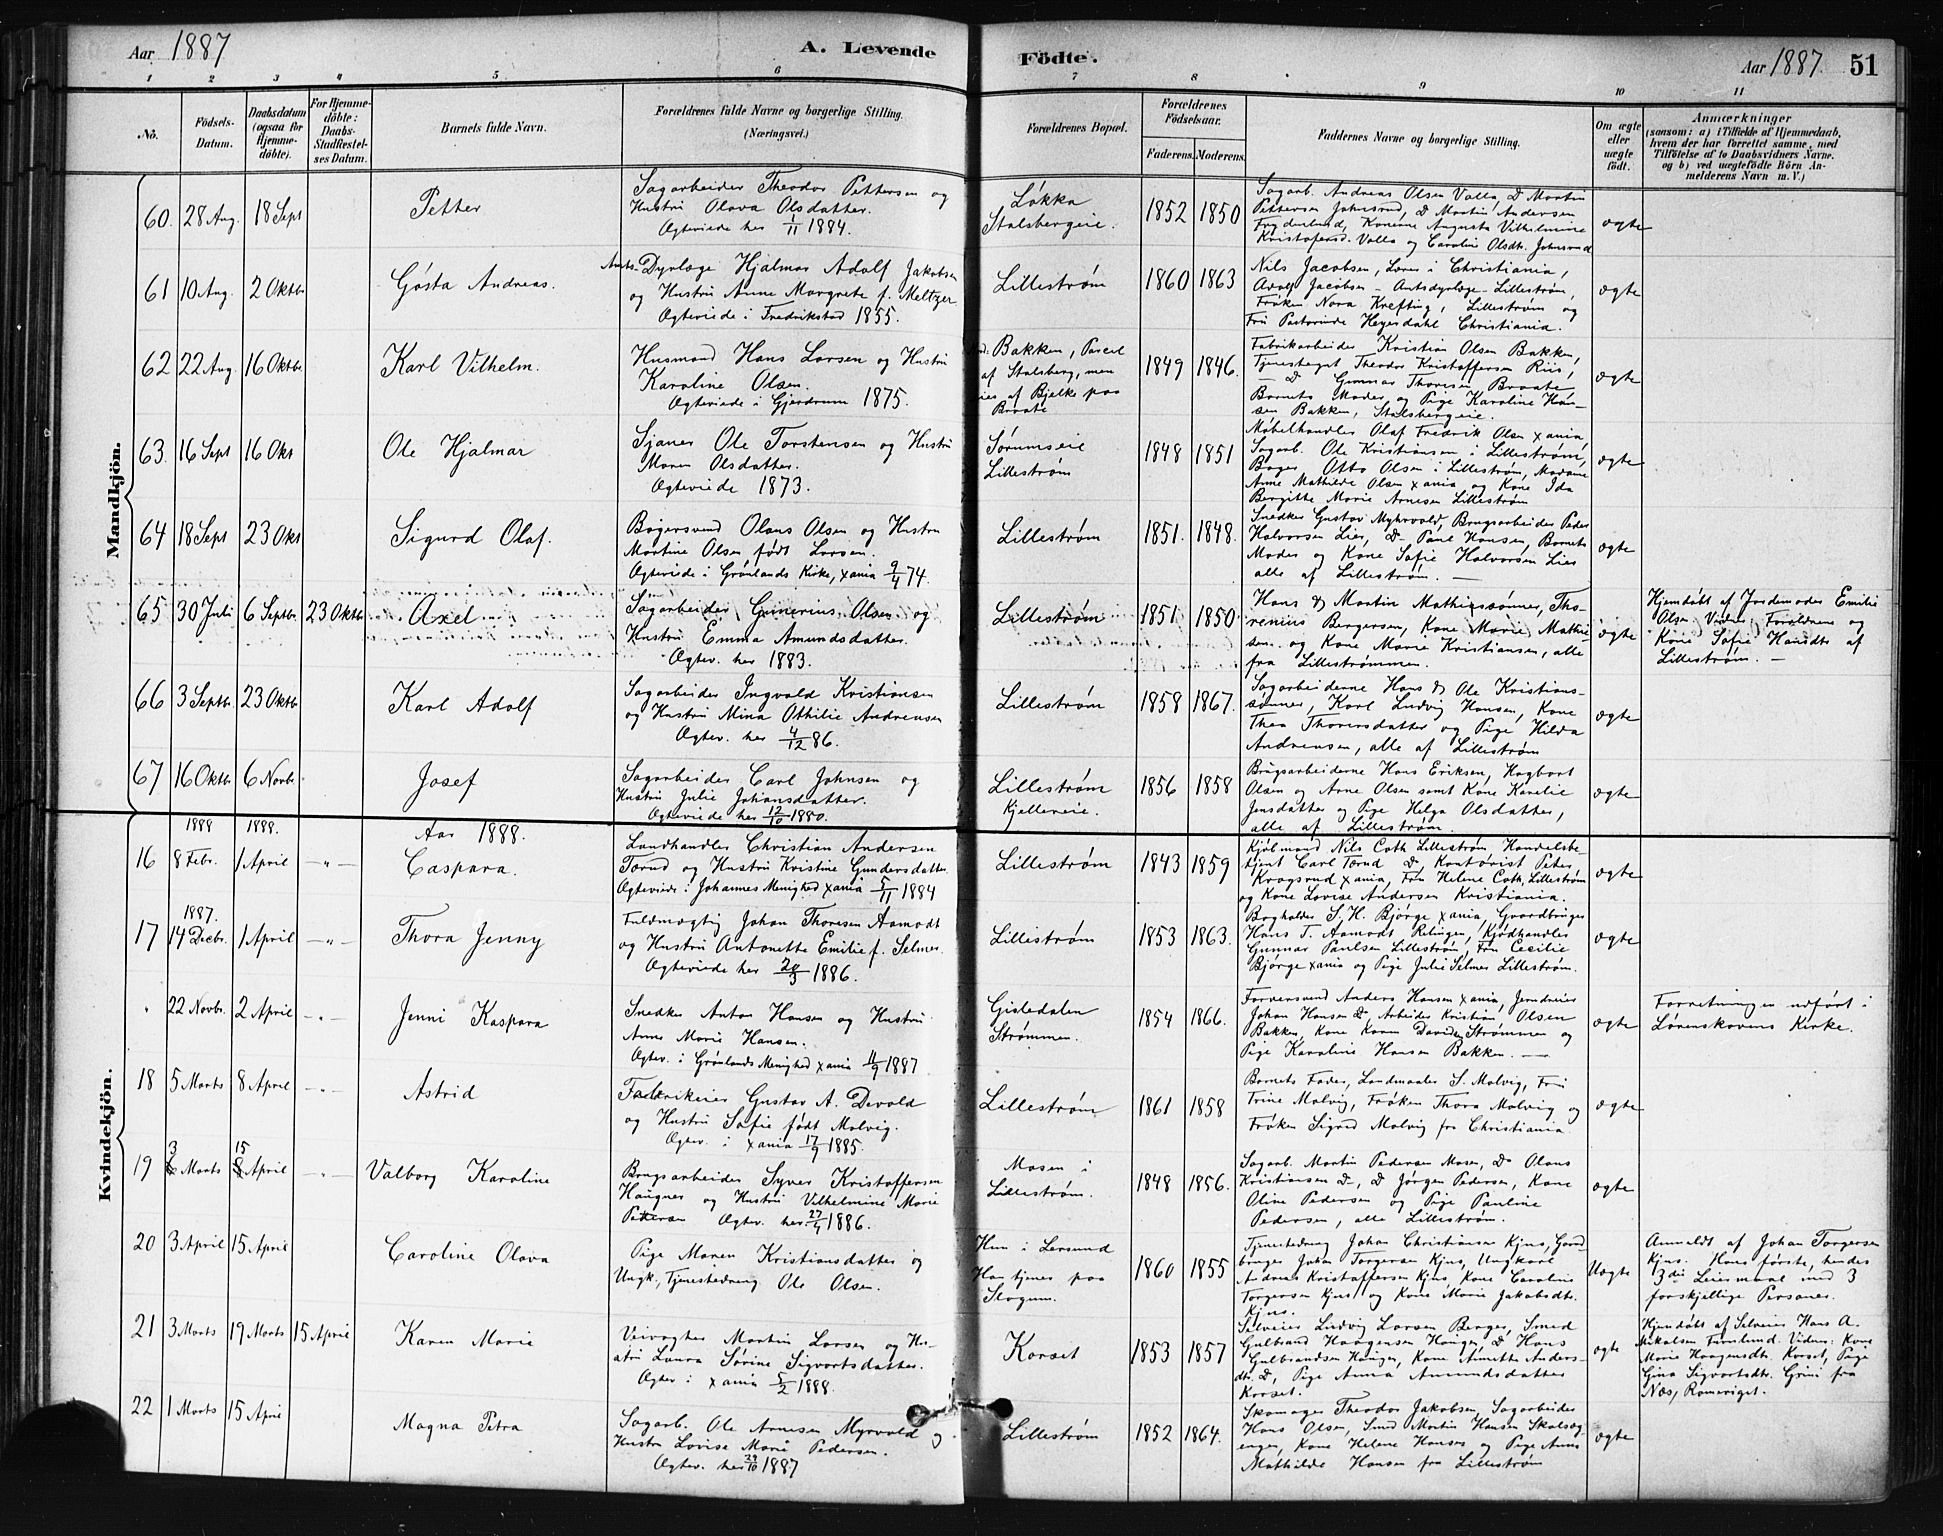 Aar 1887
A. Levende
Födte.
Aar 1887. 51
1 2 3 4 5 6 7 8 9 10 11
No.
Födsels-
Datum.
Daabsdatum
(ogsaa for
Hjemme-
döbte).
For Hjemme-
döbte:
Daabs-
Stadfæstel-
ses Datum.
Barnets fulde Navn.
Forældrenes fulde Navne og borgerlige Stilling.
(Næringsvei.)
Forældrenes Bopæl.
Forældrenes
Födselsaar.
Faderens. Moderens.
Faddernes Navne og borgerlige Stilling.
Om ægte
eller
uægte
födt.
Anmærkninger
(saasom: a) i Tilfælde af Hjemmedaab,
hvem der har forrettet samme, med
Tilföielse af to Daabsvidners Navne.
og b) ved uægtefödte Börn An-
melderens Navn m. V.)
Mandkjön.
60. 28 Aug. 18 Sept
Petter
Sagarbeider Theodor Pettersen og
Hustru Olava Olsdatter.
Ægteviede her 1/11 1884.
Løkka
Stalsbergeie.
1852 1850
Sagarb. Andreas Olsen Valla, Do Martin
Pettersen Johnsrud, Do Martin Andersen
Frydenlund, Konerne Augusta Vilhelmine
Kristofersd. Valla og Caroline Olsdt. Johnsrud
ægte
61 10 Aug. 2 Oktbr
Gösta Andreas.
Amts-Dyrlæge Hjalmar Adolf Jakobsen
og Hustru Anne Margrete f. Meltzer
Ægteviede i Fredrikstad 1855.
Lillestrøm
1860 1863
Nils Jacobsen, Lærer i Christiania,
Adolf Jacobsen - Amtsdyrlæge - Lillestrøm,
Frøken Nora Krefting, Lillestrøm og
Fru Pastorinde Heyerdahl Christiania.
ægte
62 22 Aug. 16 Oktbr.
Karl Vilhelm.
Husmand Hans Larsen og Hustru
Karoline Olsen.
Ægteviede i Gjerdrum 1875.
Bakken, Parcel
af Stalsberg, men
eies af Bjelke paa
Braate
1849 1846.
Fabrikarbeider Kristian Olsen Bakken,
Tjenestegut Theodor Kristoffersen Riis,
— Do Gunnar Thoresen Braate
Barnets Moder og Pige Karoline Han-
sen Bakken, Stalsbergeie.
ægte
63. 16 Sept 16 Okt
Ole Hjalmar
Sjauer Ole Torstensen og Hustru
Maren Olsdatter.
Ægteviede 1873.
Sørumseie
Lillestrøm
1848 1851
Møbelhandler Olaf Fredrik Olsen Xania,
Sagarb. Ole Kristiansen i Lillestrøm,
Bager Otto Olsen i Lillestrøm, Madame
Anne Mathilde Olsen Xania og Kone Ida
Bergitte Marie Arnesen Lillestrøm
ægte
64 18 Sept 23 Okt
Sigurd Olaf.
Bagersvend Olaus Olsen og Hustru
Martine Olsen født Larsen.
Ægteviede i Grønlands Kirke, Xania 9/4 74.
Lillestrøm
1851. 1848.
Snedker Gustav Myhrvold, Brugsarbeider Peder
Halvorsen Lier, Do Paul Hansen, Barnets
Moder og Kone Sofie Halvorsen Lier
alle af Lillestrøm.
ægte
65 30 Juli 6 Septbr. 23 Oktbr.
Axel
Sagarbeider Gunerius Olsen og
Hustru Emma Amundsdatter.
Ægtev. her 1883.
Lillestrøm
1851. 1850
Hans & Martin Mathissønner, Tho-
renius Bergersen, Kone Marie Mathi-
sen og Kone Marie Kristiansen, alle
fra Lillestrømmen.
ægte
Hjemdøbt af Jordmoder Emilie
Olsen. Vidner: Forældrene og
Kone Sofie Hansdtr af
Lillestrøm. —
66 3 Septbr. 23 Oktbr
Karl Adolf
Sagarbeider Ingvald Kristiansen
og Hustru Mina Othilie Andreasen
Ægtev. her 4/12 86.
Lillestrøm
1858 1867.
Sagarbeiderne Hans & Ole Kristians-
sønner, Karl Ludvig Hansen, Kone
Thea Thoresdatter og Pige Hilda
Andreasen, alle af Lillestrøm
ægte
67 16 Oktbr. 6 Novbr.
Josef
Sagarbeider Carl Johnsen og
Hustru Julie Johansdatter.
Ægteviede her 12/10 1880.
Lillestrøm
Kjellereie.
1856 1858
Brugsarbeiderne Hans Eriksen, Hagbart
Olsen og Arne Olsen samt Kone Karelie
Jensdatter og Pige Helga Olsdatter,
alle af Lillestrøm.
ægte
Kvindekjön.
1888 1888.
Aar 1888.
16 8 Febr. 1 April — " —
Caspara.
Landhandler Christian Andersen
Torud og Hustru Kristine Gundersdatter.
Ægteviede i Johannes Menighed Xania 5/11 1884
Lillestrøm
1843 1859
Kjølmand Nils Coth Lillestrøm Handelsbe-
tjent Carl Torud Do, Kontorist Peter
Kragsrud Xania, Fru Helene Coth, Lillestrøm
og Kone Lovise Andersen Kristiania.
ægte
1887.
17 14 Decbr. 1 April — " —
Thora Jenny
Fuldmægtig Johan Thoresen Aamodt
og Hustru Antonette Emilie f. Selmer.
Ægteviede her 20/3 1886.
Lillestrøm
1853 1863.
Bogholder S. H. Bjørge Xania, Gaardbruger
Hans T. Aamodt Relingen, Kjødhandler
Gunnar Paulsen Lillestrøm, Fru Cecilie
Bjørge Xania og Pige Julie Selmer Lillestrøm.
ægte
" 22 Novbr. 2 April — " —
Jenni Kaspara
Snedker Anton Hansen og Hustru
Anne Marie Hansen.
Ægtev. i Grønlands Menighed Xania 11/9 1887
Gisledalen
Strømmen.
1854 1866.
Farversvend Anders Hansen Xania, Jerndreier
Johan Hansen Do Arbeider Kristian Olsen
Bakken, Kone Karen Davidsen Strømmen og
Pige Karoline Hansen Bakken. —
ægte
Forretningen udført i
Lørenskovens Kirke.
18 5 Marts 8 April — " —
Astrid
Fabrikeier Gustav A. Devold
og Hustru Sofie født Malvig.
Ægtev. i Xania 17/9 1885.
Lillestrøm
1861 1858
Barnets Fader, Landmaaler S. Malvig, Fru
Trine Malvig, Frøken Thora Malvig og
Frøken Sigrid Malvig fra Christiania.
ægte
3 15
19 6 Marts 8 April — " —
Valborg Karoline
Brugsarbeider Syver Kristoffersen
Haugner og Hustru Vilhelmine Marie
Pettersen Ægtev. her 27/4 1886.
Mosen i
Lillestrøm.
1848 1856.
Sagarb. Martin Pedersen Mosen, Do Olaus
Kristiansen Do, Do Jørgen Pedersen, Kone
Oline Pedersen og Pige Pauline
Pedersen, alle Lillestrøm.
ægte
20 3 April 15 April
Caroline Olava
Pige Maren Kristiansdatter og
Ungk., Tjenestedreng Ole Olsen.
Hun i Lersund
Han tjener paa
Slogum.
1860 1855
Tjenestedreng Johan Christiansen Kjus, Gaard-
bruger Johan Torgersen Kjus, Ungkarl
Andreas Kristoffersen Kjus, Kone Caroline
Torgersen Kjus og Kone Marie Jakobsdtr.
Kjus.
Uægte
Anmeldt af Johan Torgersen
Kjus. Hans første, hendes
3die Leiermaal med 3
forskjellige Personer.
21 3 Marts 19 Marts 15 Aprile
Karen Marie
Veivogter Martin Larsen og Hu-
stru Laura Sørine Sigvartsdatter.
Ægtev. i Xania 5/2 1888.
Korset
1853 1857
Selveier Ludvig Larsen Berger, Smed
Gulbrand Haagensen Hauger, Do Hans
Gulbrandsen Hauger, Kone Annette Anders-
dtr. Do, Pige Anna Amundsdatter
Korset.
ægte
Hjemdøbt af Selveier Hans A.
Mikalsen Furulund. Vidner: Kone
Marie Haagensdtr. Korset, Pige
Gina Sigvartsdtr. Grini fra
Næs, Romeriget.
22 1 Marts 15 April
Magna Petra
Sagarb. Ole Arnesen Myrvold og
Hustru Lovise Marie Pedersen.
Ægtev. her 29/10 1887
Lillestrøm
1852 1864.
Skomager Theodor Jakobsen, Sagarbeider
Hans Olsen, Smed Martin Hansen
Kone Helene Hansen og Pige Anna
Mathilde Hansen fra Lillestrøm
ægte